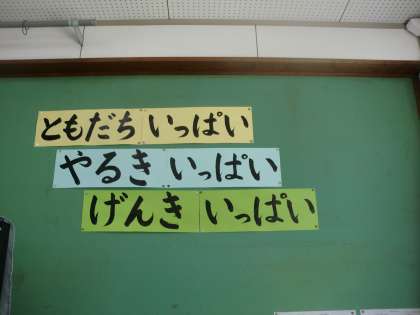 ともだち いっぱい
やるき いっぱい
げんき いっぱい